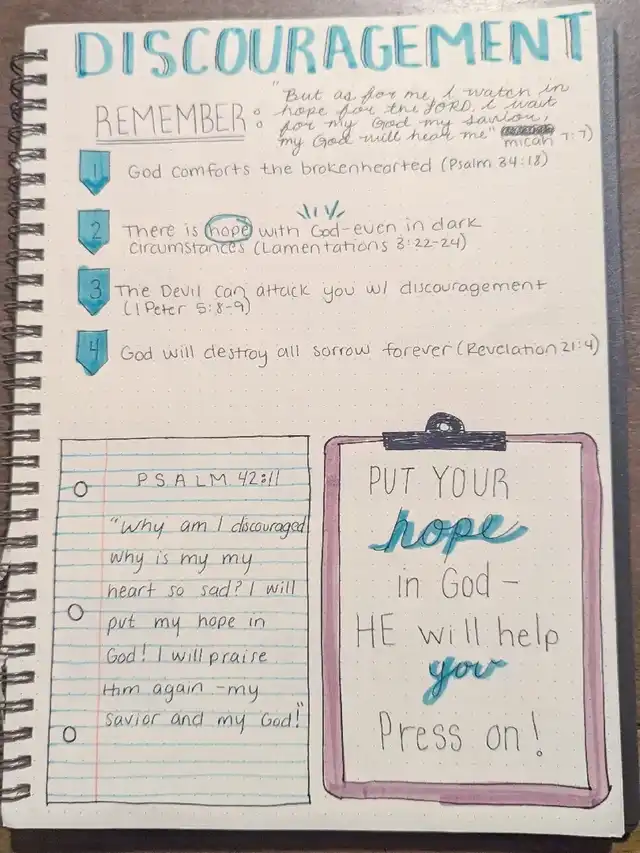 DISCOURAGEMENT
REMEMBER:
"But as for me, I watch in
hope for the LORD, I wait
for my God my savior;
my God will hear me"
micah 7:7)
1 God comforts the brokenhearted (Psalm 34:18)
2 There is hope with God-even in dark
circumstances (Lamentations 3:22-24)
3 The Devil can attack you w/ discouragement
(1 Peter 5:8-9)
4 God will destroy all sorrow forever (Revelation 21:4)
PSALM 42:11
"Why am I discouraged
why is my my
heart so sad? I will
put my hope in
God! I will praise
Him again -my
savior and my God!"
PUT YOUR
hope
in God-
HE will help
you
Press on!